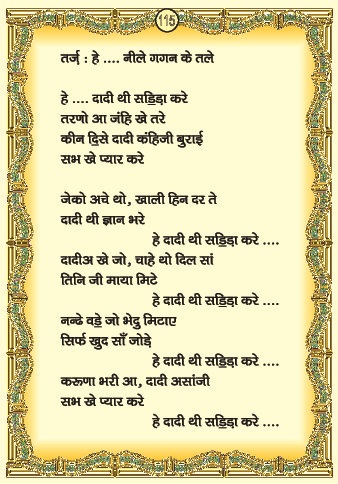 115
तर्ज़ : हे .... नीले गगन के तले
हे .... दादी थी सॾिड़ा करे
तरणो आ जंहि खे तरे
कीन ॾिसे दादी कंहिजी बुराई
सभ खे प्यार करे
जेको अचे थो, खाली हिन दर ते
दादी थी ज्ञान भरे
हे दादी थी सॾिड़ा करे ....
दादीअ खे जो, चाहे थो दिल सां
तिनि जी माया मिटे
हे दादी थी सॾिड़ा करे ....
नन्ढे वॾे जो भेदु मिटाए
सिर्फ खुद साँ जोड़े
हे दादी थी सॾिड़ा करे ....
करुणा भरी आ, दादी असांजी
सभ खे प्यार करे
हे दादी थी सॾिड़ा करे ....